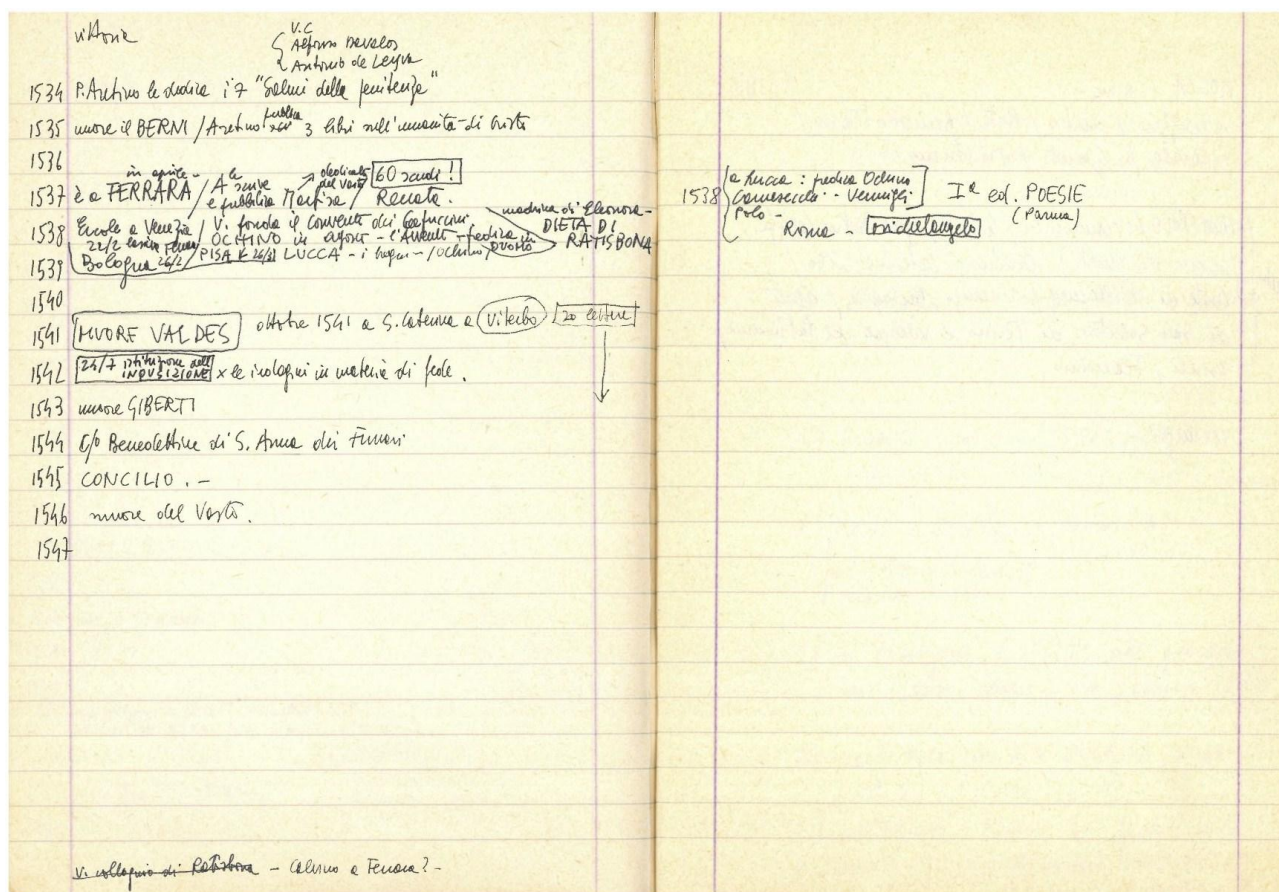 Vittoria
V.C
Alfonso Davalos
Antonio de Leyva
1534 P. Aretino le dedica i 7 "Salmi della penitenza"
1535 muore il BERNI / Aretino pubblica 3 libri sull'umanità di Cristo
1536
in aprile - le dedicata 60 scudi!
1537 è a FERRARA / A scrive e pubblica Marfisa del Vasto / Renata.
madrina di Eleonora -
1538 Ercole a Venezia / V. fonda il convento dei Cappuccini DIETA DI
22/2 lascia Ferrara / OCHINO in agosto - l'Avvento - predica in DUOMO RATISBONA
1539 Bologna 26/2 / PISA LUCCA - i bagni - / Ochino
1540
1541 MUORE VALDES ottobre 1541 a S. Caterina a Viterbo 20 lettere
1542 24/7 istituzione dell' INQUISIZIONE x le indagini in materia di fede.
1543 muore GIBERTI
1544 c/o Benedettine di S. Anna dei Funari
1545 CONCILIO . -
1546 muore del Vasto.
1547
V. colloquio di Ratisbona - Calvino a Ferrara? -
a Lucca : predica Ochino
1538 Carnesecchi - Vermigli Iª ed. POESIE
Polo - (Parma)
Roma - Michelangelo